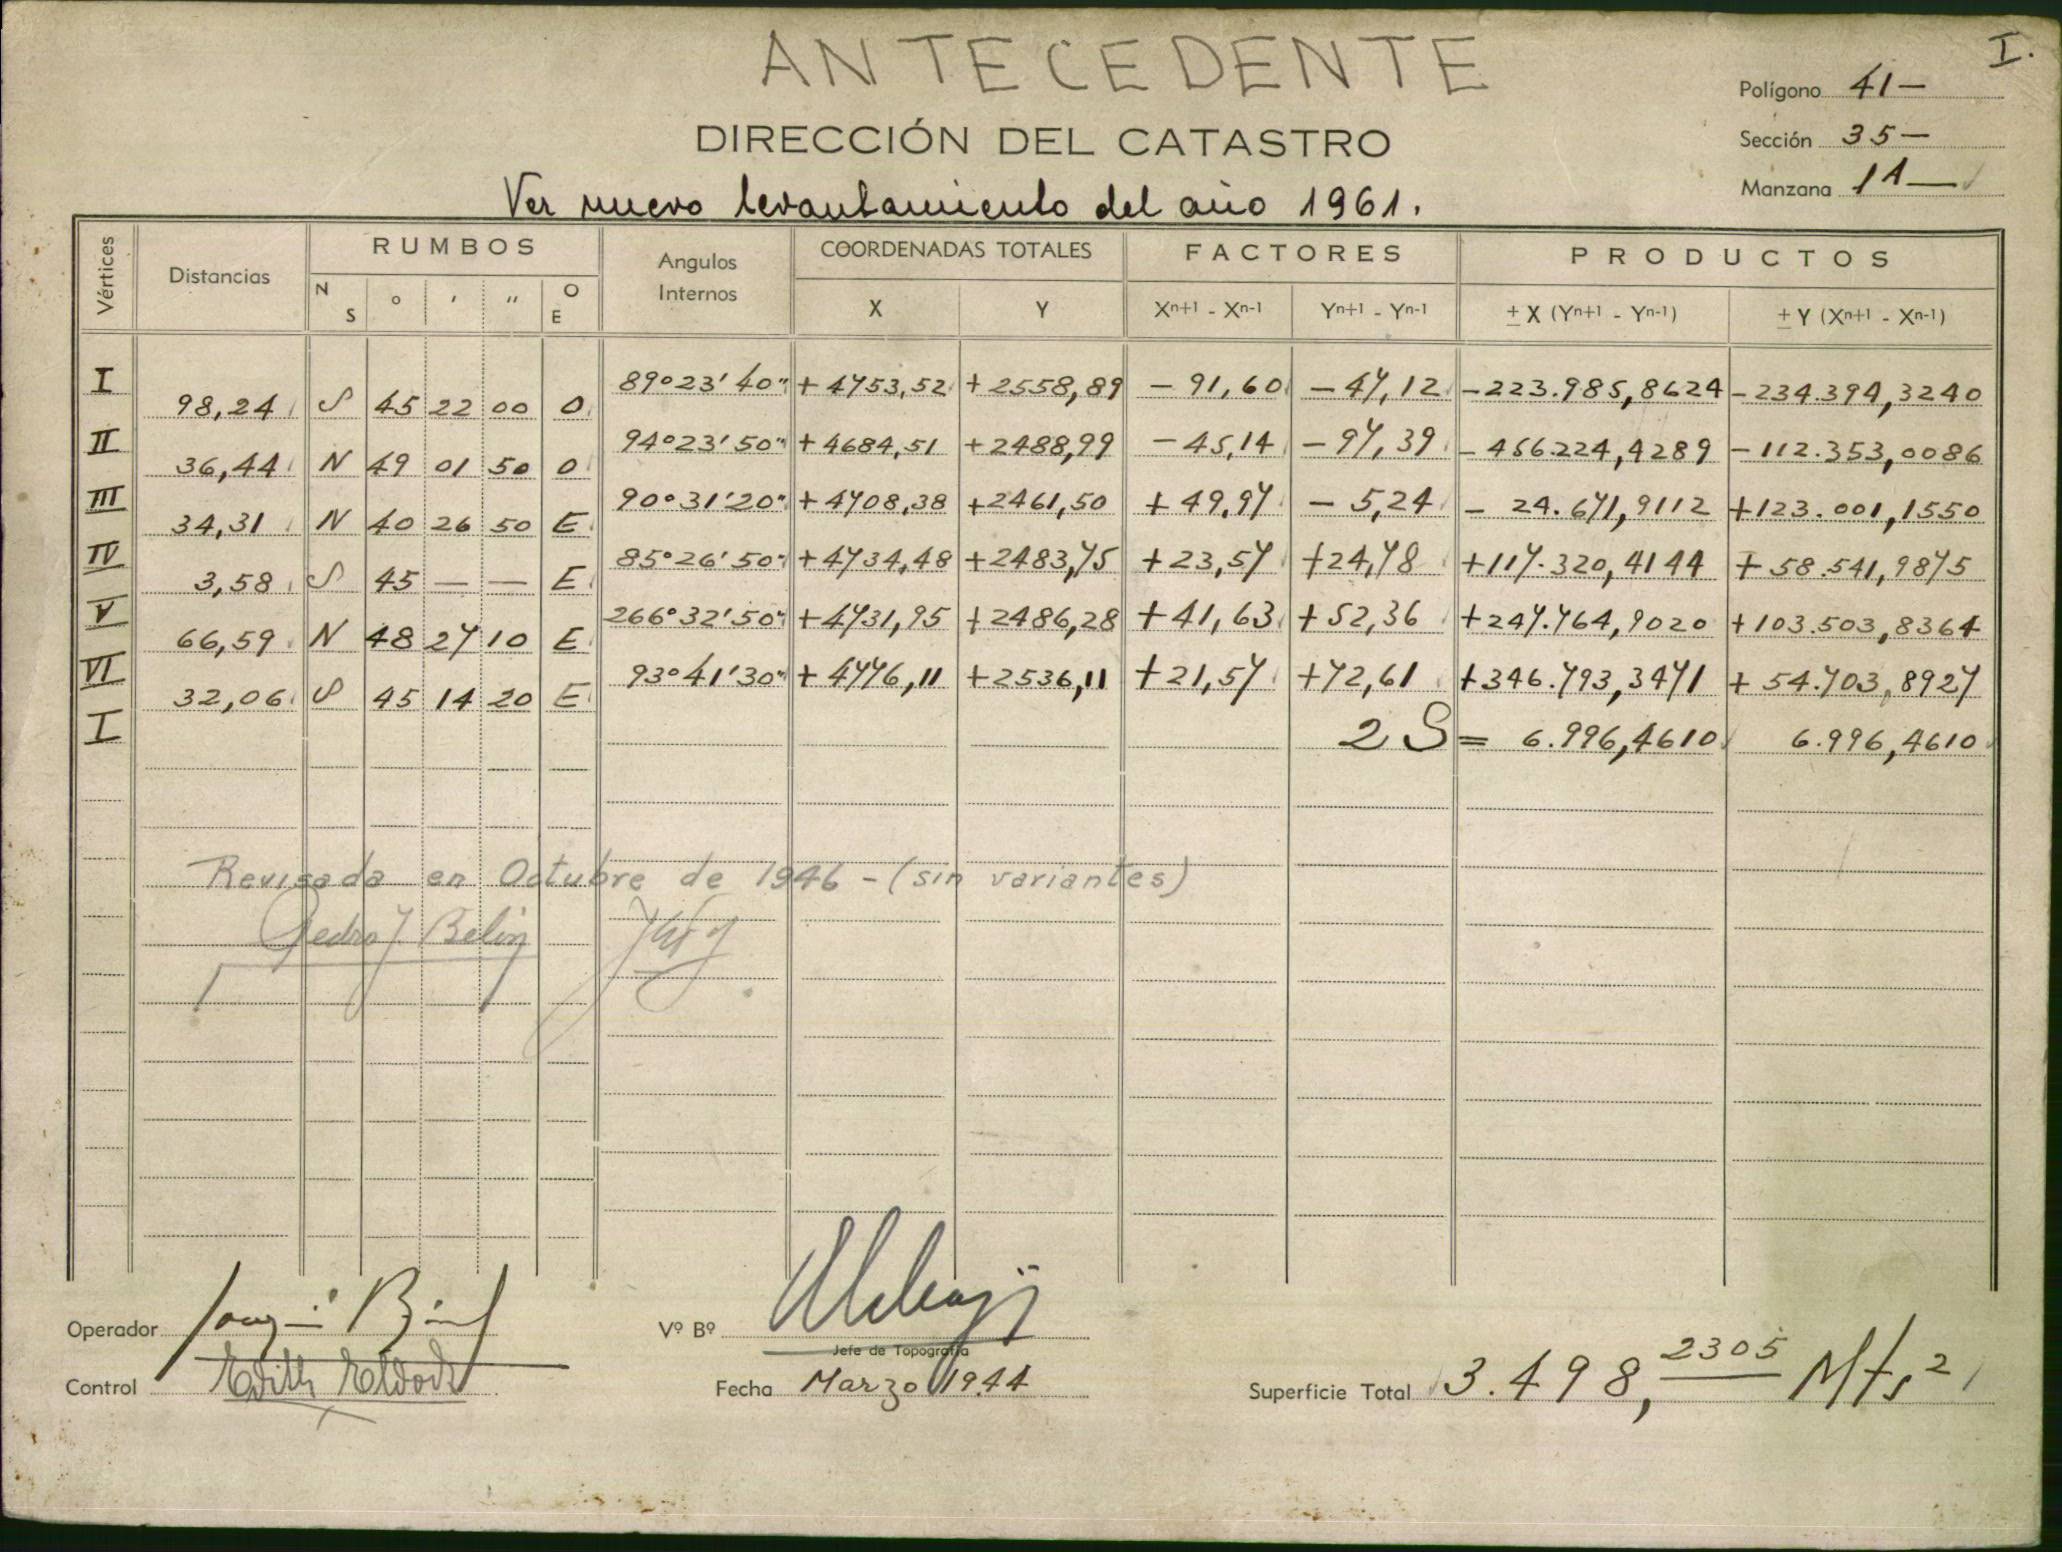 I.
ANTECEDENTE
Polígono 41—
DIRECCIÓN DEL CATASTRO
Sección 35—
Manzana 1A—
Ver nuevo levantamiento del año 1961.
Vértices Distancias RUMBOS Angulos Internos COORDENADAS TOTALES FACTORES PRODUCTOS
N S ° ' " O E X Y Xn+1 - Xn-1 Yn+1 - Yn-1 ± X (Yn+1 - Yn-1) ± Y (Xn+1 - Xn-1)
I 89°23'40" +4753,52 +2558,89 -91,60 -47,12 -223.985,8624 -234.394,3240
98,24 S 45 22 00 O
II 94°23'50" +4684,51 +2488,99 -45,14 -97,39 -456.224,4289 -112.353,0086
36,44 N 49 01 50 O
III 90°31'20" +4708,38 +2461,50 +49,97 -5,24 -24.671,9112 +123.001,1550
34,31 N 40 26 50 E
IV 85°26'50" +4734,48 +2483,75 +23,57 +24,78 +117.320,4144 +58.541,9875
3,58 S 45 — — E
V 266°32'50" +4731,95 +2486,28 +41,63 +52,36 +247.764,9020 +103.503,8364
66,59 N 48 27 10 E
VI 93°41'30" +4776,11 +2536,11 +21,57 +72,61 +346.793,3471 +54.703,8927
32,06 S 45 14 20 E
I 2S = 6.996,4610 6.996,4610
Revisada en Octubre de 1946 - (sin variantes)
Pedro J. Belin
Operador
Vº Bº
Jefe de Topografía
Control Edith
Fecha Marzo 1944
Superficie Total 3.498,2305 Mts²